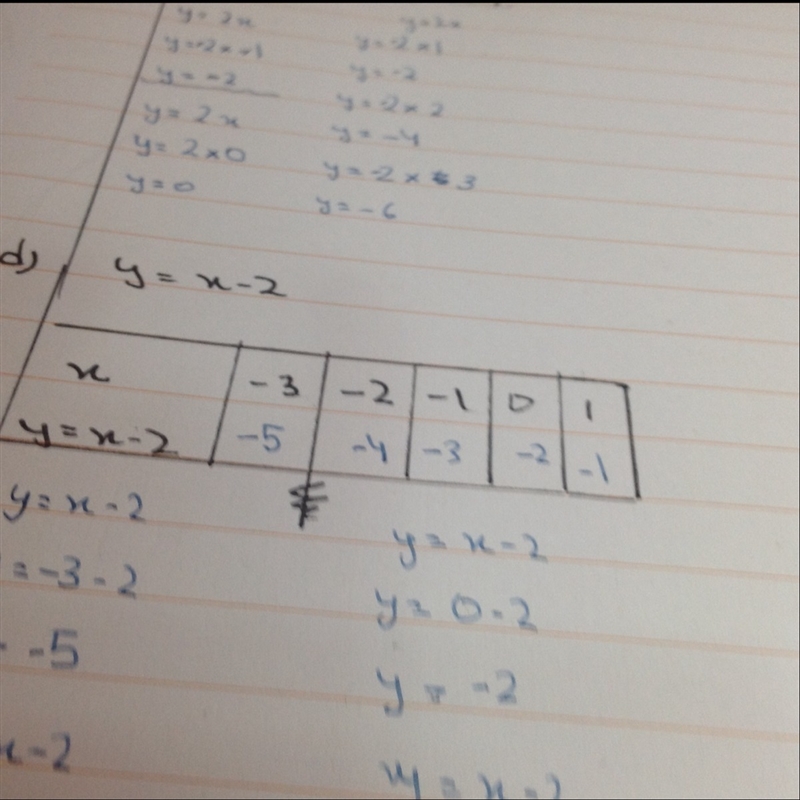 y = 2x
y = -2x-1
y = -2
y = 2x
y = 2×0
y = 0
y = 2x
y = -2×1
y = -2
y = -2×2
y = -4
y = -2× 3
y = -6
d)
y = x-2
x -3 -2 -1 0 1
y = x-2 -5 -4 -3 -2 -1
y = x-2
= -3-2
-5
x-2
y = x-2
y = 0-2
y = -2
y = x-2